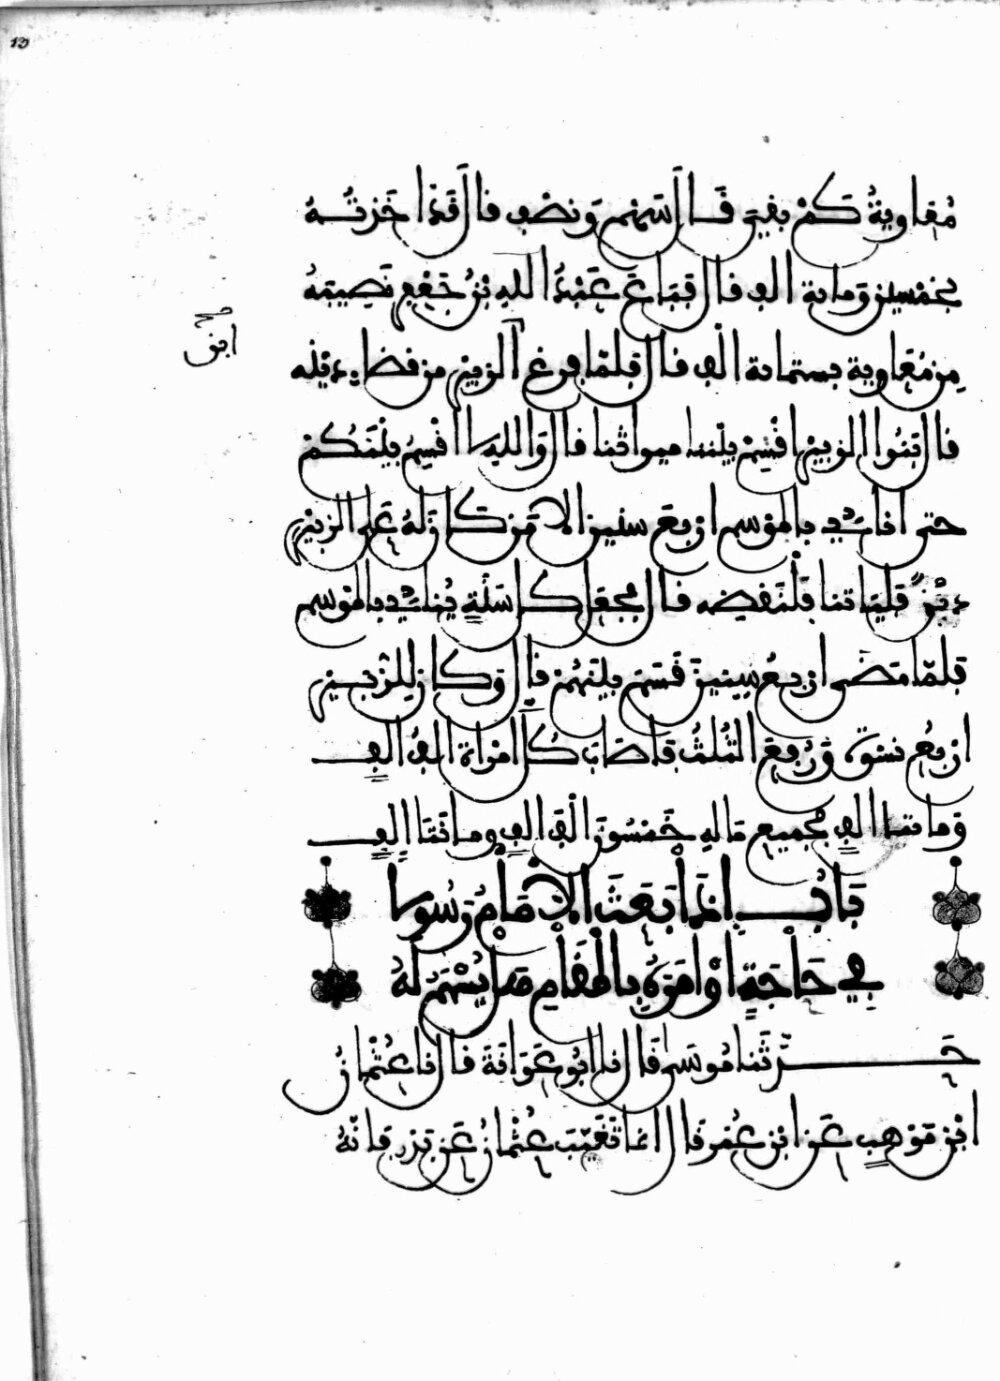 مُعاويةُ كَمْ بقيَ قَالَ سَهْمٌ وَنصْف قال قَد اخَذتُهُ
بخمسين ومائة الف قال فبَاعَ عَبْدُ الله بْنُ جَعْفر نَصِيبَهُ
مِن مُعَاوية بستمائة الْف قال فلمّا فرغ ابن الزبير من قضاء دَيْنه
قال بَنُوا الزبير اقْسِمْ بيْننا ميراثَنا قال وَاللهِ لا اقْسِمُ بيْنَكُمْ
حتى انادي بالموْسم ارْبعَ سنين الا مَن كانَ لهُ عَلى الزبيْر
ديْن فليَاتنا فلْنَقضِه قال فجعَل كل سَنةٍ يُنادي بالموْسم
فلمّا مضَى ارْبعُ سِنينَ قَسَم بيْنَهُمْ قال وَكان للزبير
ارْبعُ نسْوة وَرَفعَ الثُلثُ فاصَابَ كُلَّ امْراة الفُ الف
وَمائتا الف فجميع مَالهِ خَمْسُونَ الْفَ الف ومائتَا الف
بَابُ اِذا بَعَثَ الاِمَامُ رَسُولا
فِي حَاجَةٍ اوْ اَمَرَهُ بِالْمُقامِ هَل يُسْهَمُ لهُ
حَدّثَنا مُوسَى قال نا ابُو عَوَانَةَ قال نا عُثْمانُ
ابْن مَوْهَب عَن ابْن عُمَر قال انما تَغَيّبَ عُثْمانُ عَن بَدْر فانّهُ
صح
ابن
10